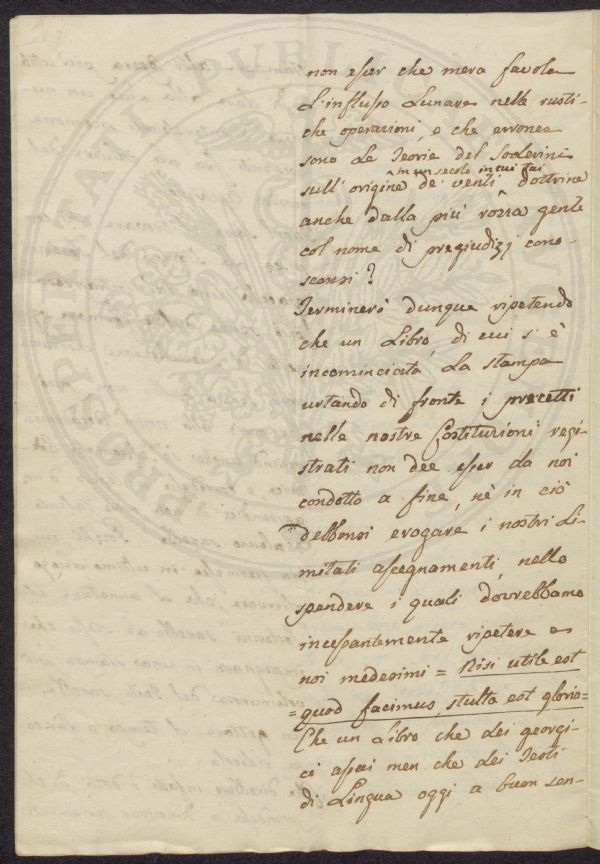 non esser che mera favola
L'influsso Lunare nelle rusti-
che operazioni, e che erronee
sono Le Teorie del Soderini
in un secolo in cui tai
sull' origine de' venti dottrine
anche dalla più rozza gente
col nome di pregiudizj cono-
sconsi?
Terminerò dunque ripetendo
che un Libro, di cui si è
incominciata La stampa
urtando di fronte i precetti
nelle nostre Costituzioni regi-
strati non dee esser da noi
condotto a fine, nè in ciò
debbonsi erogare i nostri Li-
mitati assegnamenti, nello
spendere i quali dovrebbamo
incessantemente ripetere a
noi medesimi = Nisi utile est
= quod facimus, stulta est gloria =
Che un Libro che dei georgi-
ci assai men che dei Testi
di Lingua oggi a buon sen-
PROSPERITATI PUBLICAE